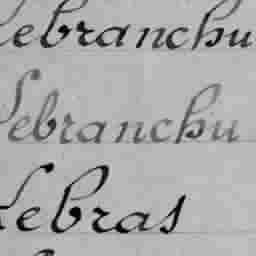 Lebranchu
Lebranchu
Lebras